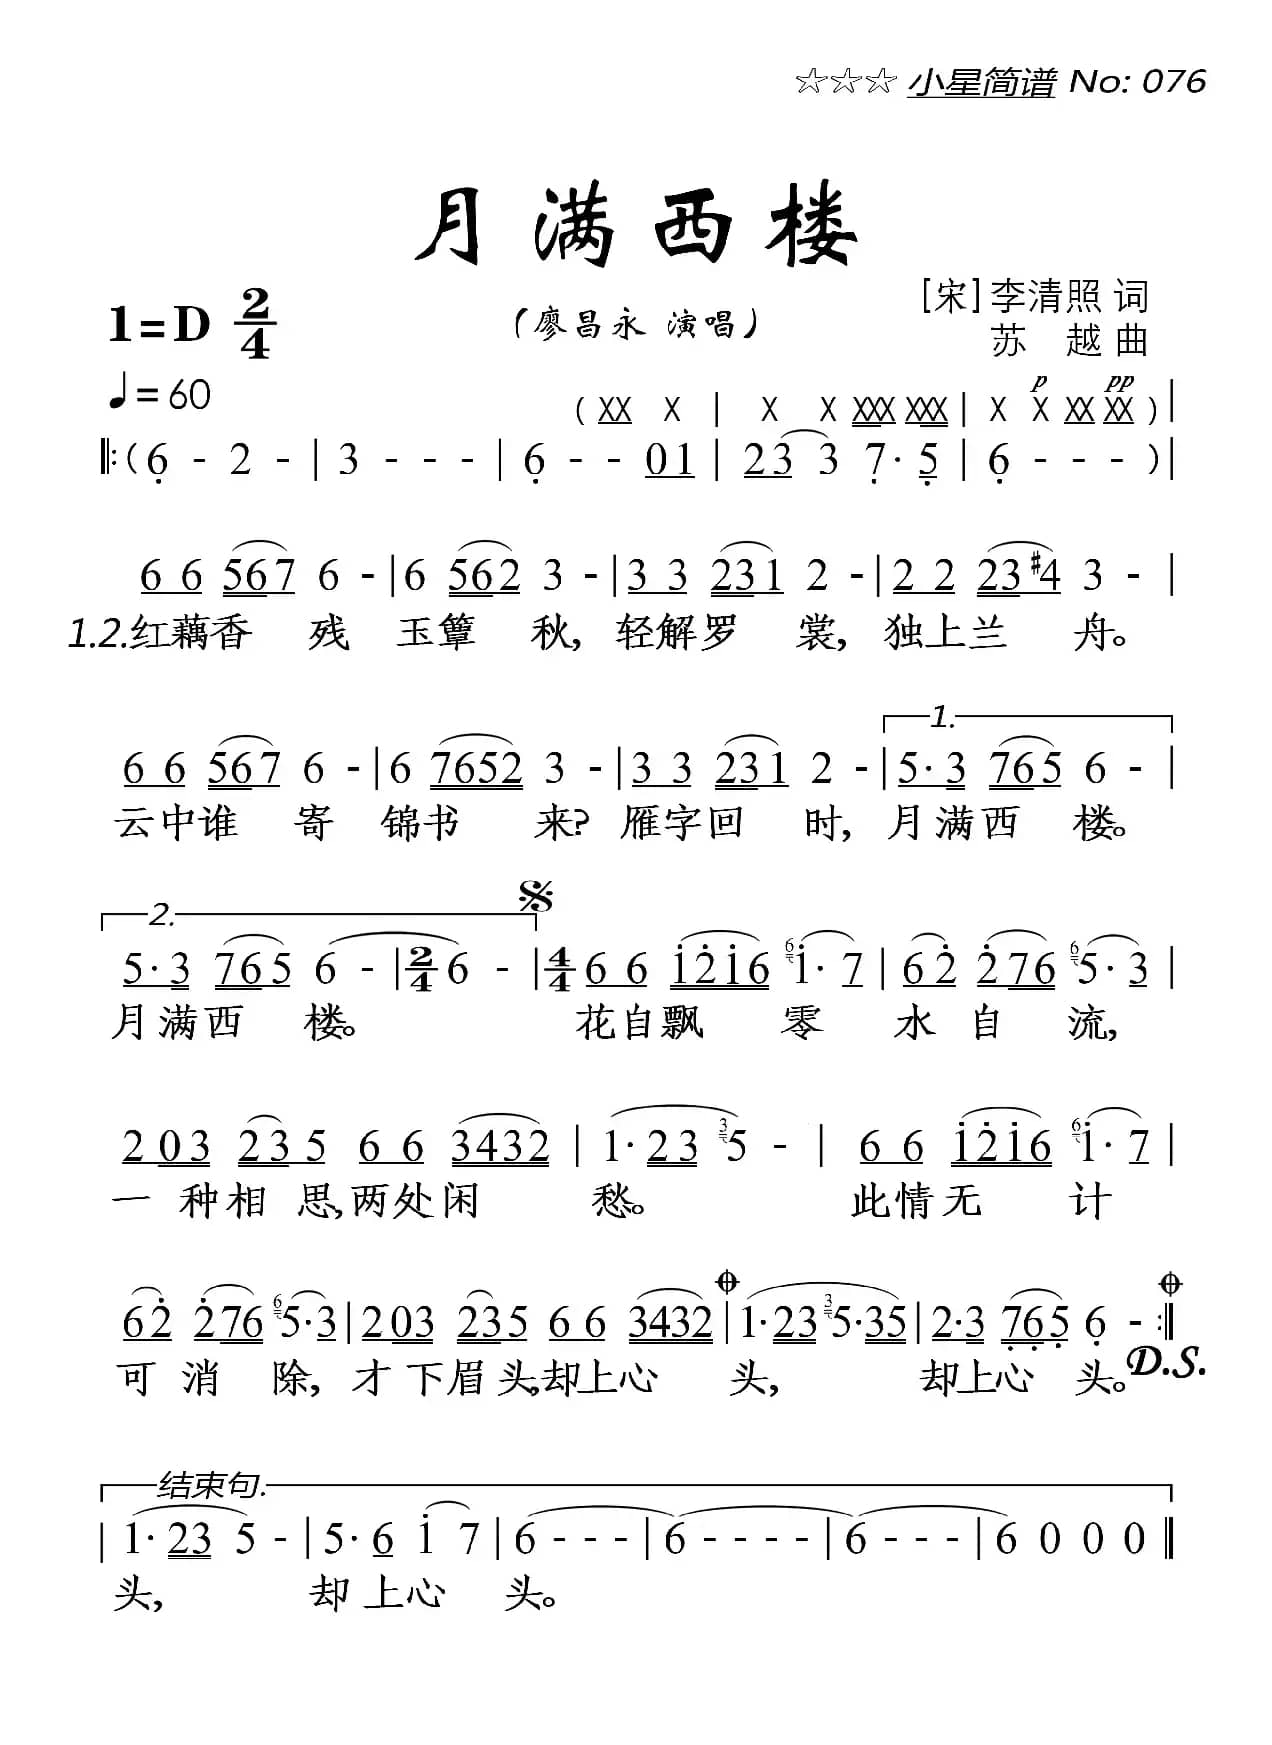 ☆☆☆ 小星简谱 No: 076
月满西楼
1=D 2/4
(廖昌永 演唱)
[宋]李清照 词
苏 越 曲
♩=60
p pp
( XX X | X X XXX XXX | X X XX XX ) |
‖: ( 6 - 2 - | 3 - - - | 6 - - 0 1 | 2 3 3 7· 5 | 6 - - - ) |
6 6 567 6 - | 6 562 3 - | 3 3 231 2 - | 2 2 23#4 3 - |
1.2.红藕香 残 玉簟 秋, 轻解罗 裳, 独上兰 舟。
1.
6 6 567 6 - | 6 7652 3 - | 3 3 231 2 - | 5· 3 765 6 - |
云中谁 寄 锦书 来? 雁字回 时, 月满西 楼。
2.
5· 3 765 6 - | 2/4 6 - | 4/4 6 6 1216 6 1· 7 | 62 276 6 5· 3 |
月满西 楼。 花自飘 零 水 自 流,
2 03 235 6 6 3432 | 1· 23 3 5 - | 6 6 1216 6 1· 7 |
一 种相 思,两处闲 愁。 此情无 计
62 276 6 5·3 | 2 03 235 6 6 3432 | 1·23 3 5·35 | 2·3 765 6 - :‖
可 消 除, 才下眉头,却上心 头, 却上心 头。 D.S.
结束句.
| 1· 23 5 - | 5· 6 1 7 | 6 - - - | 6 - - - - | 6 - - - | 6 0 0 0 ‖
头, 却上心 头。